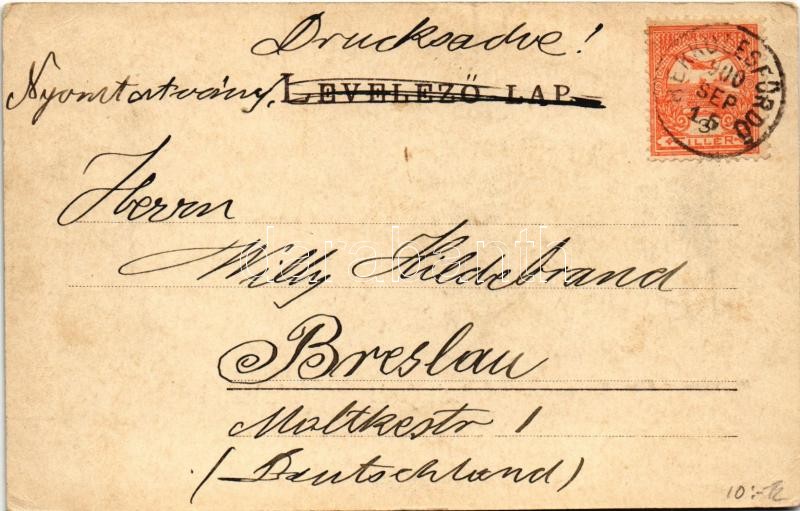 Drucksache!
Nyomtatvány.
LEVELEZŐ LAP.
HERKULESFÜRDŐ
900
SEP
15
FILLÉR
Herrn
Willy Hildebrand
Breslau
Moltkestr 1
(Deutschland)
darabanth
10:-